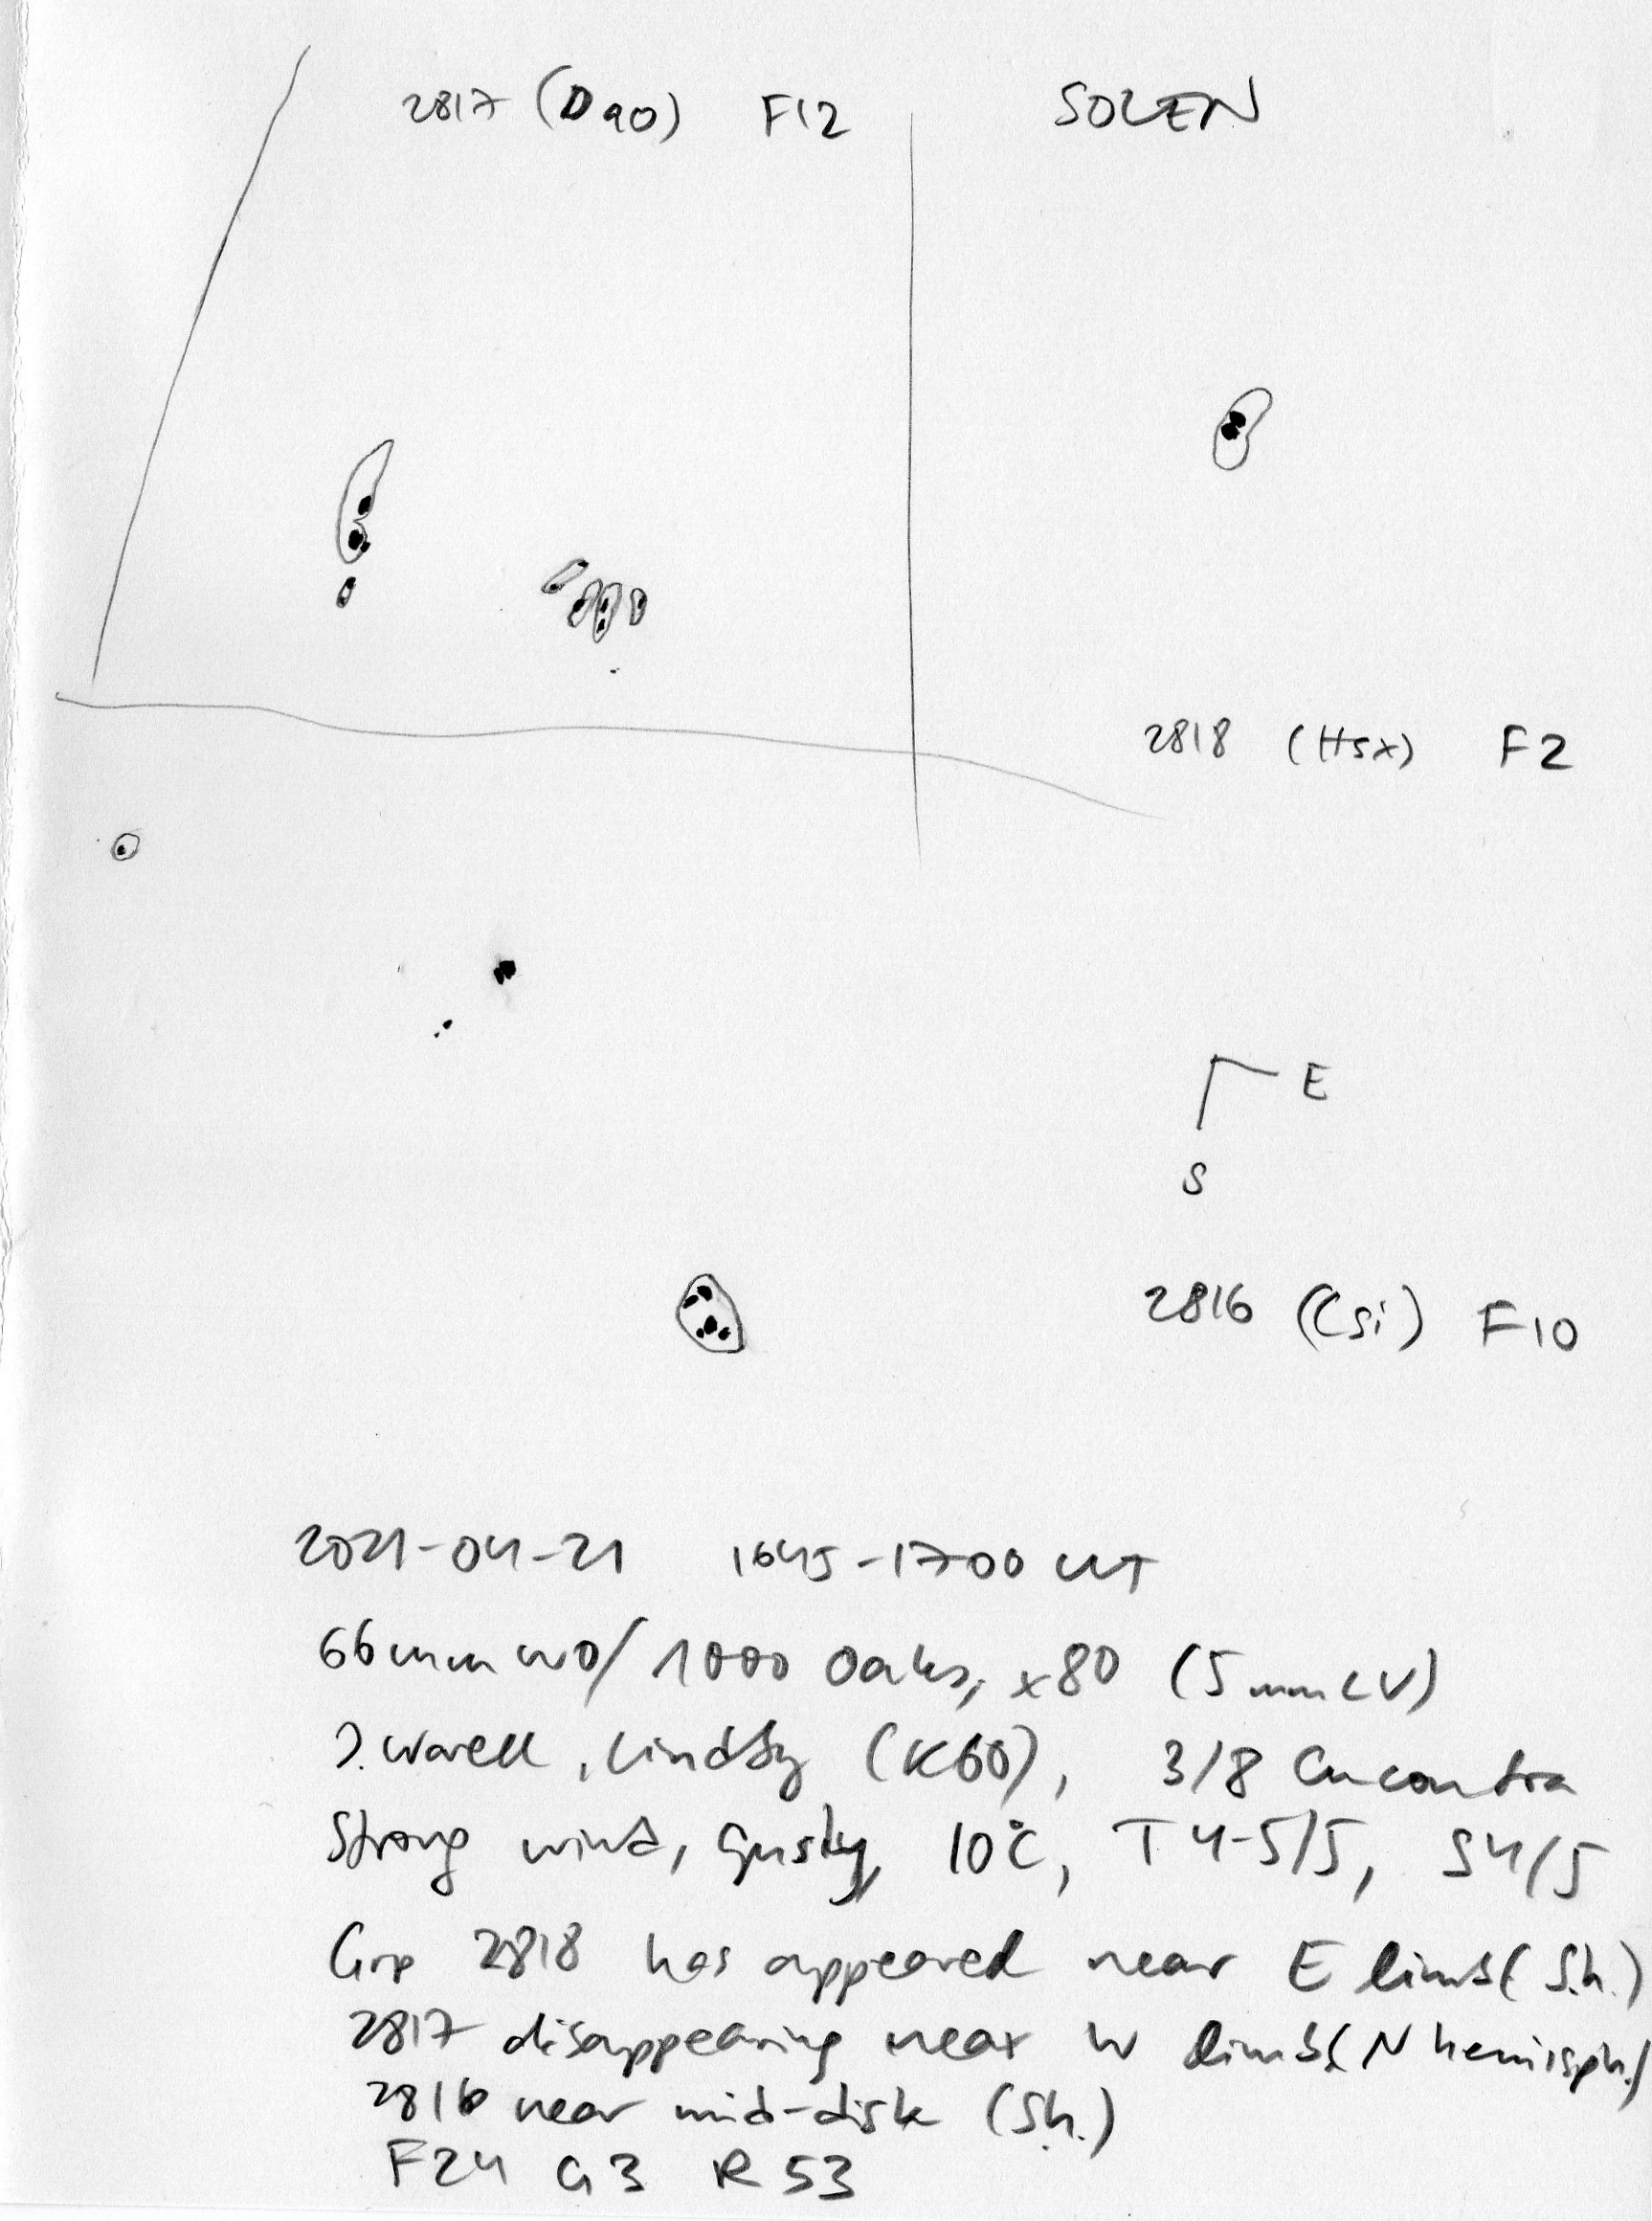 2817 (Dao) F12
SOLEN
2818 (Hsx) F2
E
S
2816 (Csi) F10
2021-04-21 1645-1700 UT
66mm WO/1000 Oaks, x80 (5mm LV)
J. Warell, Lindby (K60), 3/8 Cu contra
Strong wind, Gusty, 10°C, T 4-5/5, S4/5
Grp 2818 has appeared near E limb (S.h.)
2817 disappearing near W limb (N hemisph.)
2816 near mid-disk (S.h.)
F24 G3 R53